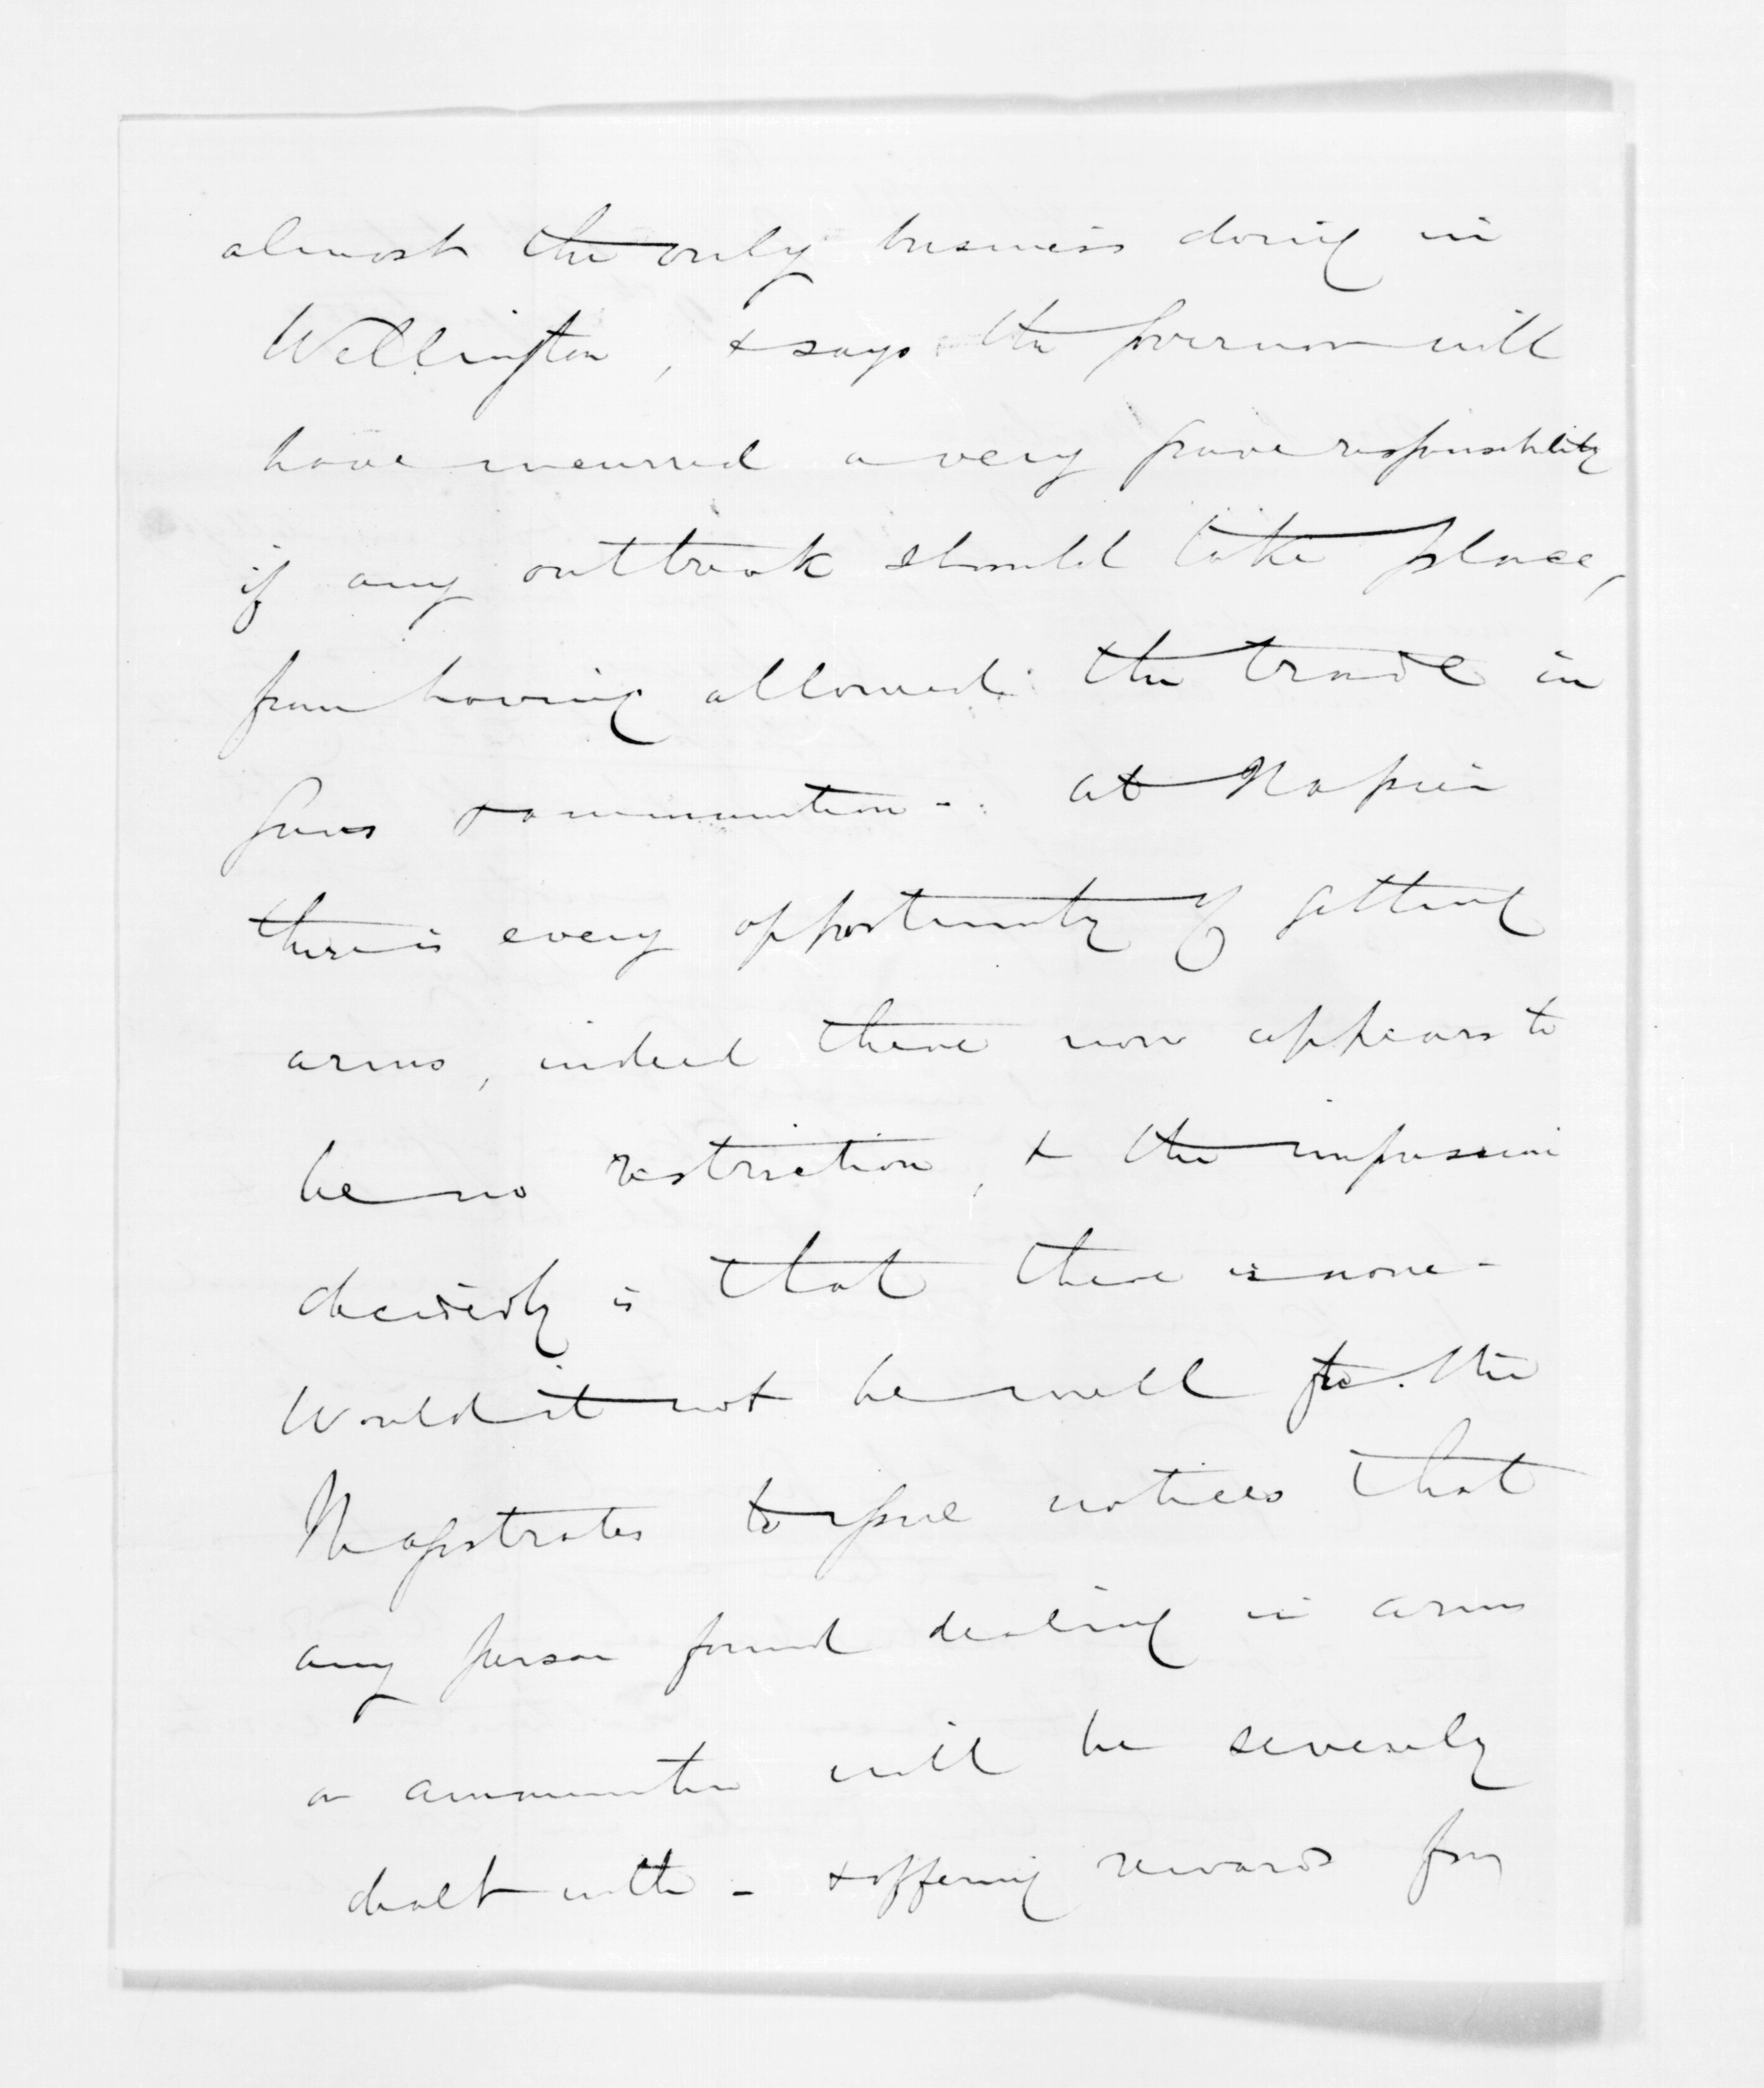 almost the only business doing in
Wellington, & says the Governor will
have incurred a very grave responsibility
if any outbreak should take place,
from having allowed the trade in
Guns & ammunition - at Napier
there is every opportunity of getting
arms, indeed there now appears to
be no restriction, & the impression
decidedly is that there is none -
Would it not be well for the
Magistrates to issue notices that
any person found dealing in arms
or ammunition will be severely
dealt with - & offering rewards for